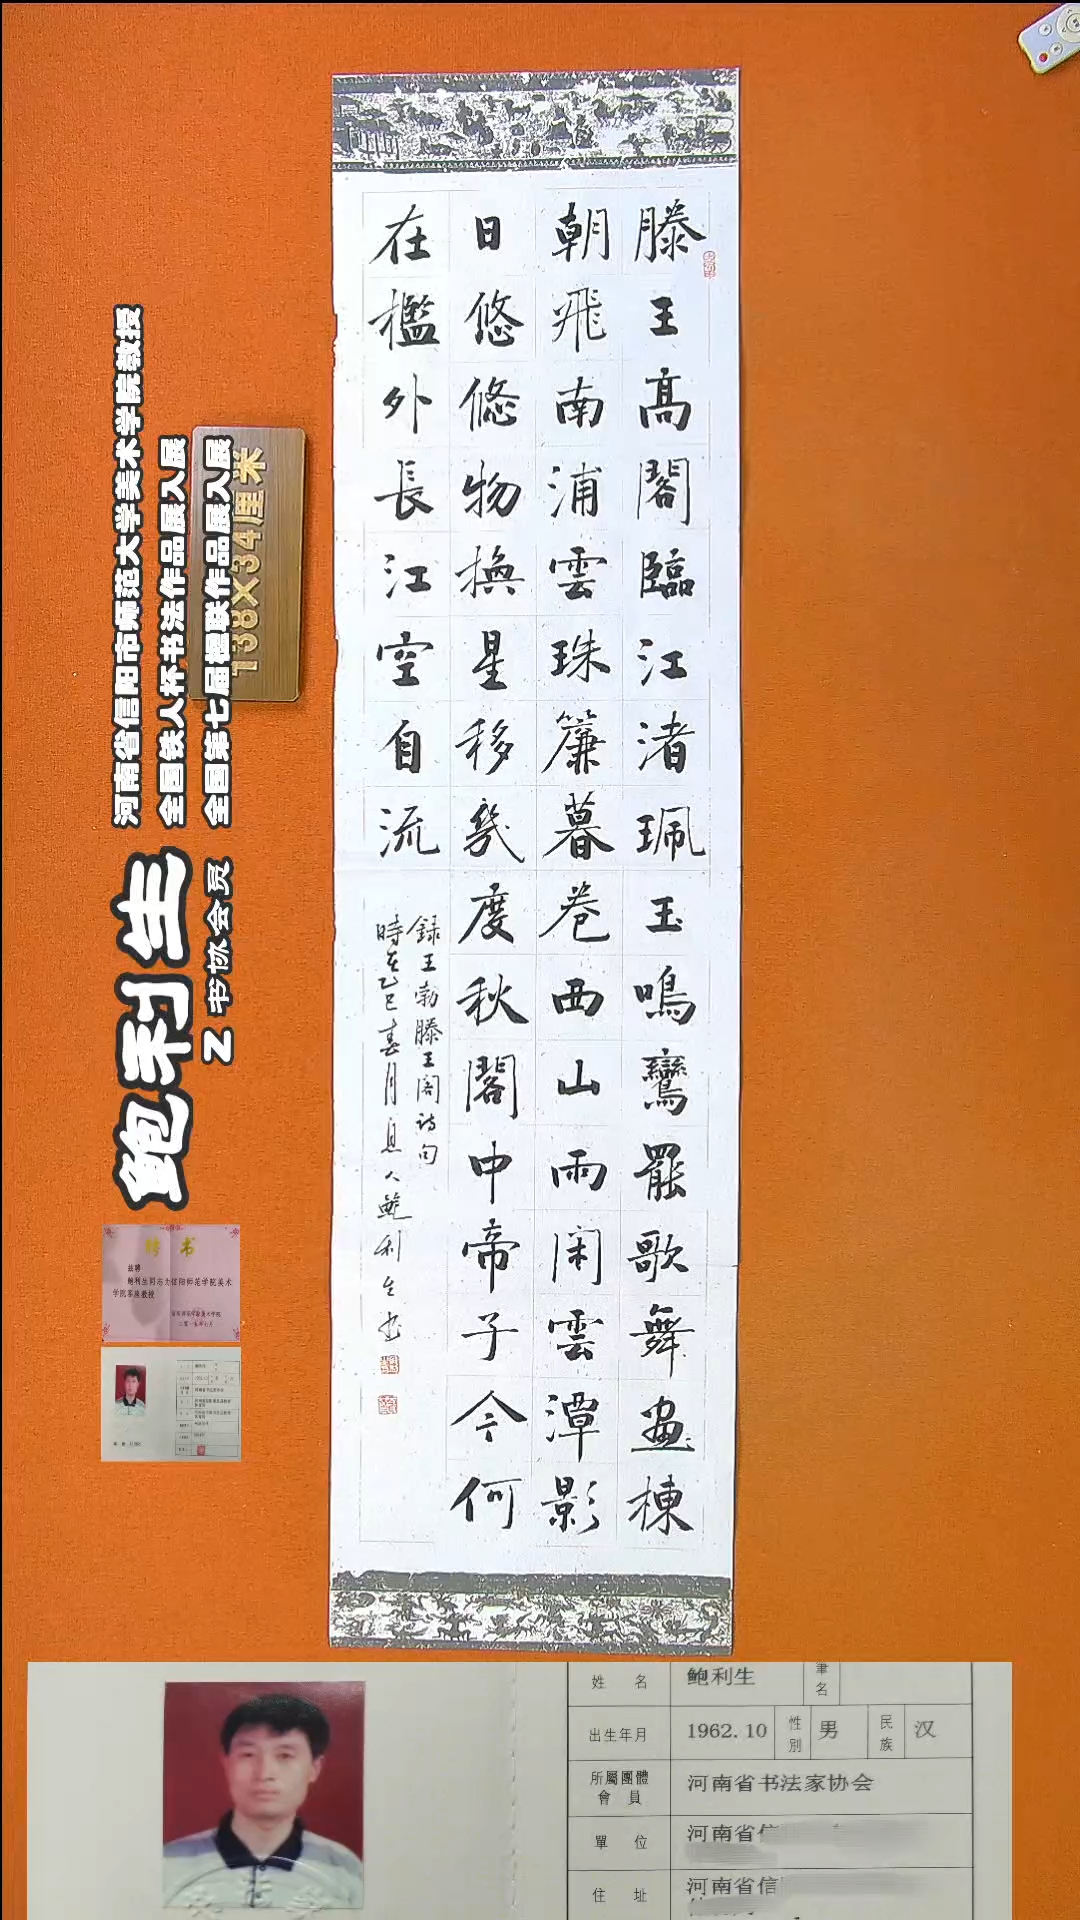 滕王高閣臨江渚珮玉鳴鸞罷歌舞畫棟
朝飛南浦雲珠簾暮卷西山雨闲雲潭影
日悠悠物換星移幾度秋閣中帝子今何
在檻外長江空自流
録王勃滕王阁诗句
時在乙巳春月息人鲍利生书
河南省信阳市师范大学美术学院教授
全国铁人杯书法作品展入展
全国第七届楹联作品展入展
鲍利生
Z书协会员
138X34厘米
聘书
兹聘
鲍利生同志为信阳师范学院美术
学院客座教授
姓名 鲍利生 筆名
出生年月 1962.10 性别 男 民族 汉
所屬團體會員 河南省书法家协会
單位 河南省信
住址 河南省信